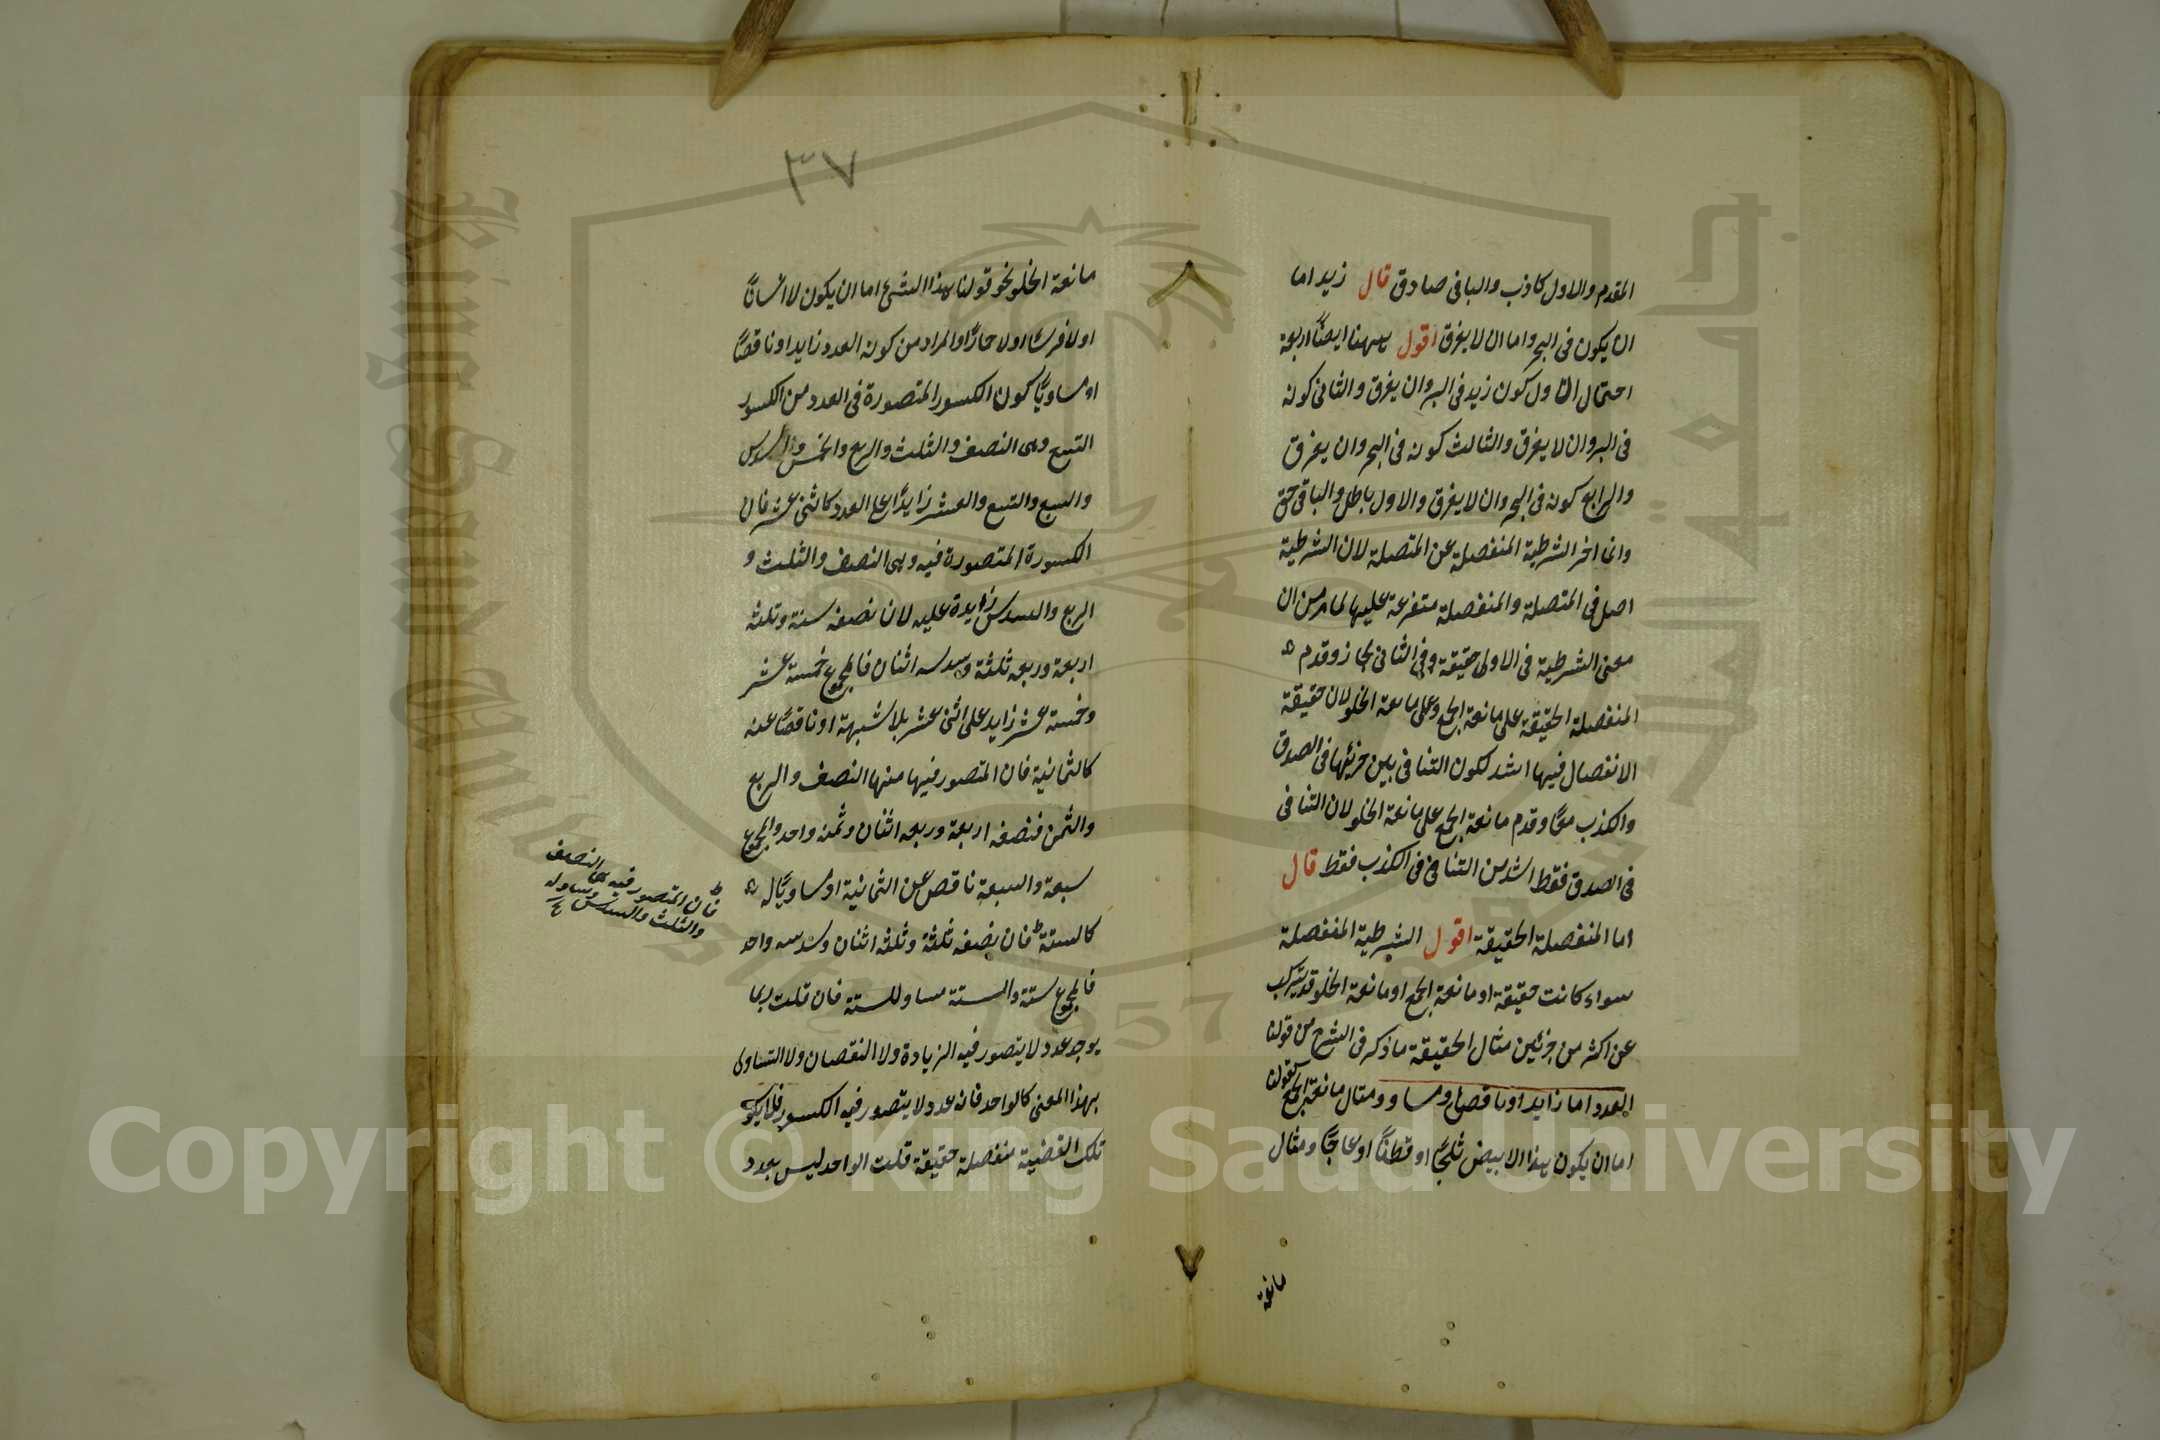 المقدم والاول كاذب والباقى صادق قال زيد اما
ان يكون فى البحر واما ان لا يغرق اقول ههنا ايضًا اربعة
احتمال الاول كون زيد فى البر وان يغرق والثانى كونه
فى البر وان لا يغرق والثالث كونه فى البحر وان يغرق
والرابع كونه فى البحر وان لا يغرق والاول باطل والباقى حق
وانما اخر الشرطية المنفصلة عن المتصلة لان الشرطية
اصل فى المتصلة والمنفصلة متفرعة عليها لما مر من ان
معنى الشرطية فى الاولى حقيقة وفى الثانى مجاز وقدم
المنفصلة الحقيقة على مانعة الجمع وعلى مانعة الخلو لان حقيقة
الانفصال فيها اشد لكون التنافى بين جزئيها فى الصدق
والكذب معًا وقدم مانعة الجمع على مانعة الخلو لان التنافى
فى الصدق فقط اشد من التنافى فى الكذب فقط قال
اما المنفصلة الحقيقة اقول الشرطية المنفصلة
سواء كانت حقيقة او مانعة الجمع او مانعة الخلو قد يتركب
عن اكثر من جزئين مثال الحقيقة ما ذكره فى الشرح من قولنا
العدد اما زايد او ناقص او مساو ومثال مانعة الجمع كقولنا
اما ان يكون هذا الابيض ثلجًا او قطنًا او عاجًا ومثال
مانعة
٣٧
مانعة الخلو نحو قولنا هذا الشئ اما ان يكون لا انسانًا
او لا فرسًا او لا حمارًا والمراد من كون العدد زايد او ناقصًا
او مساويًا كون الكسور المتصورة فى العدد من الكسور
التسع وهى النصف والثلث والربع والخمس والسدس
والسبع والتسع والعشر زايدًا على العدد كاثنى عشر فان
الكسورة المتصورة فيه وهى النصف والثلث و
الربع والسدس زايدة عليه لان نصفه ستة وثلثه
اربعة وربعه ثلثة وسدسه اثنان فالمجموع خمسة عشر
وخمسة عشر زايد على اثنى عشر بلا شبهة او ناقصًا عنه
كالثمانية فان المتصور فيها منها النصف والربع
والثمن فنصفه اربعة وربعه اثنان وثمنه واحد والمجموع
سبعة والسبعة ناقص عن الثمانية او مساويًا له
كالستة فان نصفه ثلثة وثلثه اثنان وسدسه واحد
فالمجموع ستة والستة مساو للستة فان قلت ربما
يوجد عدد لا يتصور فيه الزيادة ولا النقصان ولا التساوى
بهذا المعنى كالواحد فانه عدد لا يتصور فيه الكسور فلا يكون
تلك القضية منفصلة حقيقة قلت الواحد ليس بعدد
فان المتصور فيه النصف
والثلث والسدس
King Saud University
1957
Copyright © King Saud University